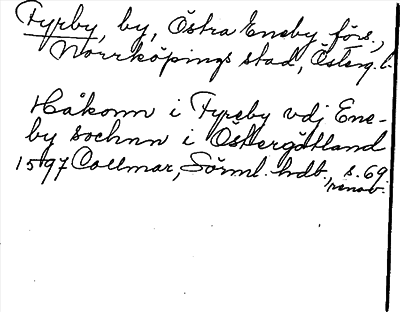 Fyrby, by, Östra Eneby förs.,
Norrköpings stad, Österg. l.
Håkonn i Fyreby vdj Ene-
by sochnn i Östergötland
1597 Collmar, Sörml. hdl., s. 69
renov.